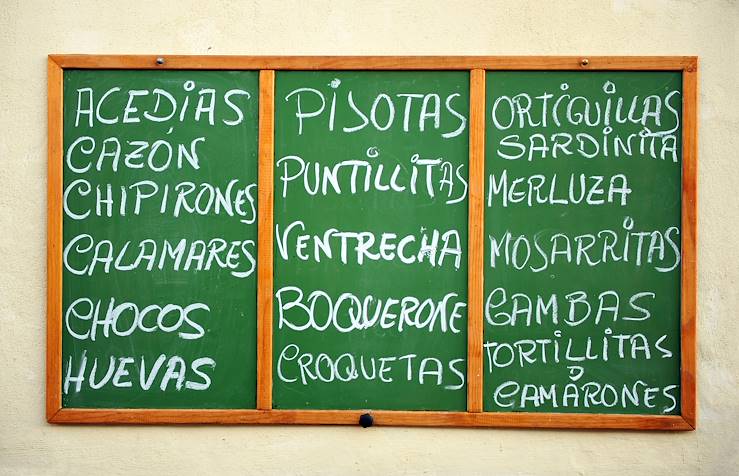 ACEDIAS
CAZÓN
CHIPIRONES
CALAMARES
CHOCOS
HUEVAS
PIJOTAS
PUNTILLITAS
VENTRECHA
BOQUERONE
CROQUETAS
ORTIGUILLAS
SARDINITA
MERLUZA
MOSARRITAS
GAMBAS
TORTILLITAS
CAMARONES